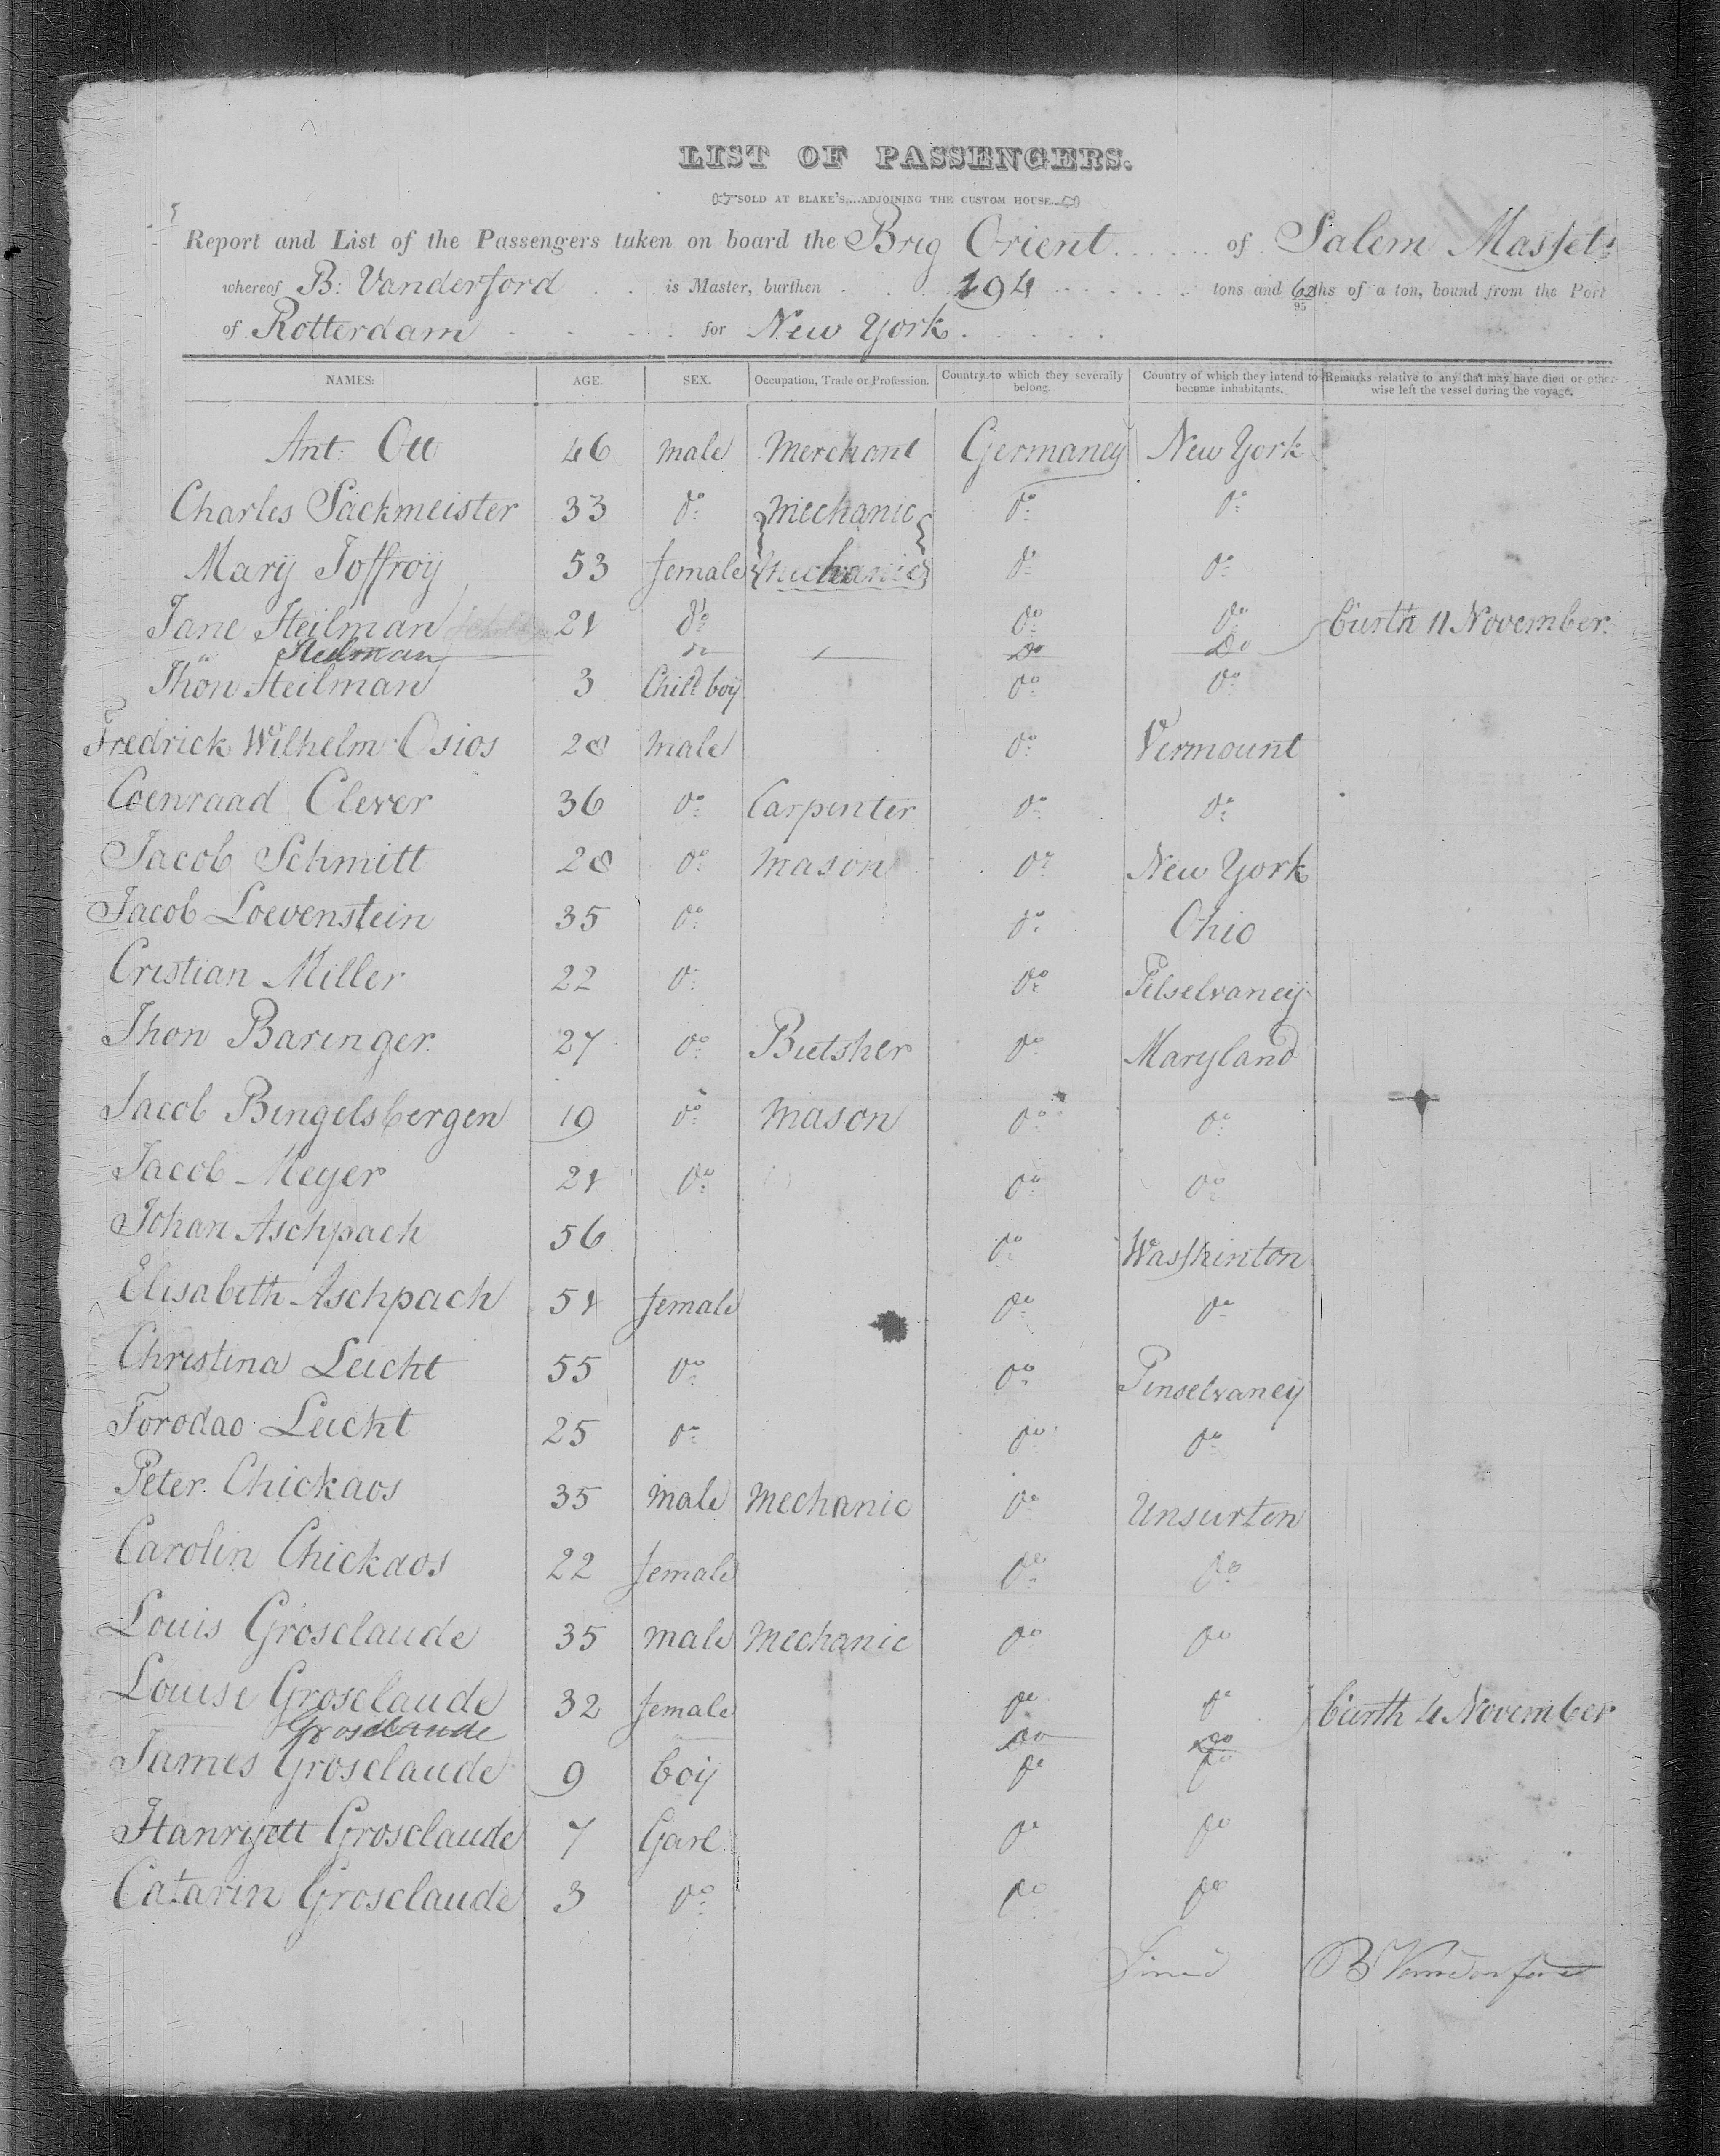 LIST OF PASSENGERS.
SOLD AT BLAKE'S,...ADJOINING THE CUSTOM HOUSE.
Report and List of the Passengers taken on board the Brig Orient of Salem Massets
whereof B: Vanderford is Master, burthen 194 tons and 62/95ths of a ton, bound from the Port
of Rotterdam for New York.
NAMES: AGE. SEX. Occupation, Trade or Profession. Country to which they severally belong. Country of which they intend to become inhabitants. Remarks relative to any that may have died or otherwise left the vessel during the voyage.
Ant: Ott 46 male Merchant Germaney New York
Charles Sackmeister 33 do mechanic do do
Mary Joffroy 53 female mechanic do do
Jane Heilman 21 do do do burth 11 November.
Heilman do do
Jhon Heilman 3 Child boy do do
Fredrick Wilhelm Osios 28 male do Vermount
Coenraad Clever 36 do Carpenter do do
Jacob Schmitt 28 do mason do New York
Jacob Loevenstein 35 do do Ohio
Cristian Miller 22 do do Pilselvaney
Jhon Baringer 27 do Butsher do Maryland
Jacob Bingelsbergen 19 do mason do do
Jacob Meyer 21 do do do
Johan Aschpach 56 do Wasshinton
Elisabeth Aschpach 51 female do do
Christina Leicht 55 do do Pinselvaney
Torodao Leicht 25 do do do
Peter Chickaos 35 male Mechanic do Unsurten
Carolin Chickaos 22 female do do
Louis Grosclaude 35 male Mechanic do do
Louise Grosclaude 32 female do do burth 4 November
Grosclaude do do
James Grosclaude 9 boy do do
Hanryett Grosclaude 7 Garl do do
Catarin Grosclaude 3 do do do
Sined B Vanderford